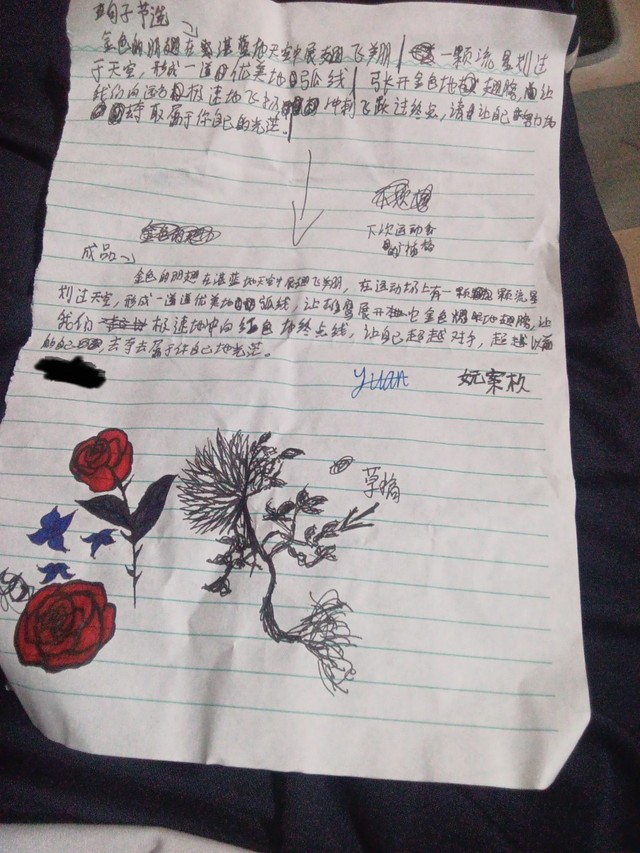 句子节选
金色的翅膀在湛蓝地天空中展翅飞翔 一颗流星划过
于天空，形成一道优美地弧线 张开金色地翅膀，让
我们向远方极速地飞 冲刺飞跃过终点，请让自己努力地
夺取属于你自己的光芒。
下次运动会
成品
金色的翅膀在湛蓝地天空中展翅飞翔，在运动场上有一颗颗流星
划过天空，形成一道道优美地弧线，让雄鹰展开它金色地翅膀，让
我们极速地冲向红色地终点线，让自己超越对手，超越以前
的自己，去夺去属于你自己地光芒。
yuan
草稿